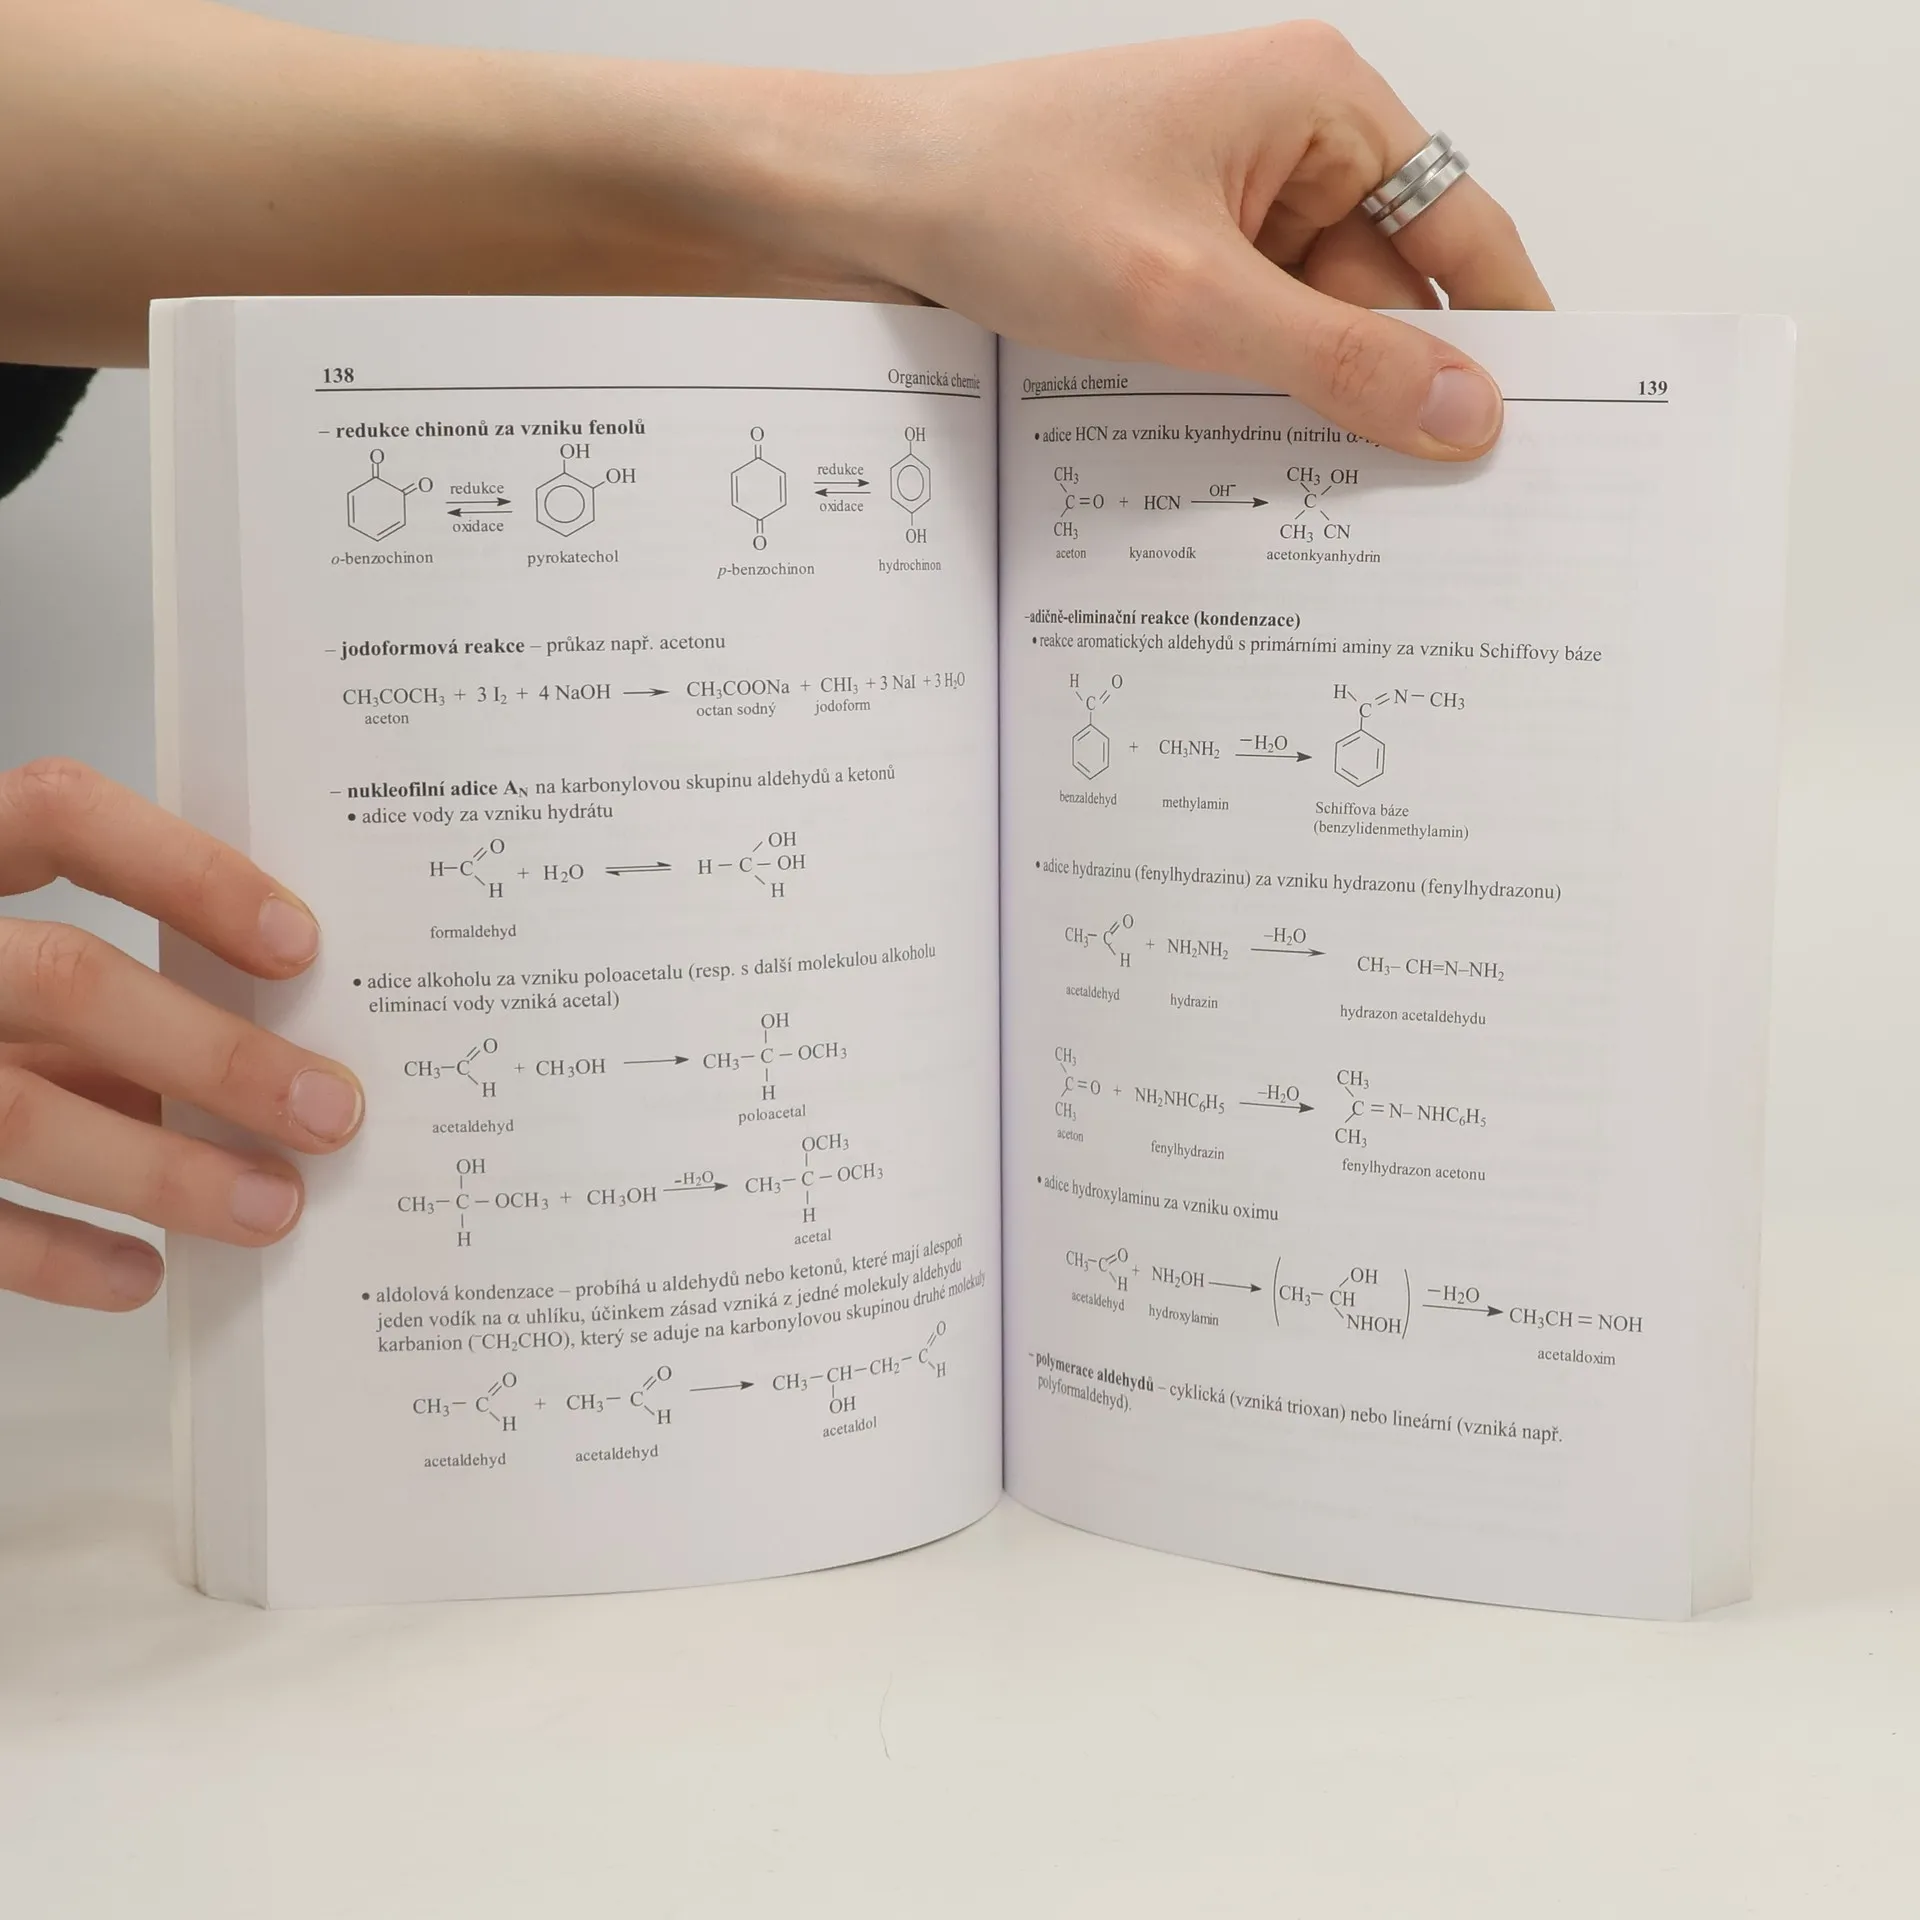 138 Organická chemie
– redukce chinonů za vzniku fenolů
O O redukce oxidace OH OH O O redukce oxidace OH OH
o-benzochinon pyrokatechol p-benzochinon hydrochinon
– jodoformová reakce – průkaz např. acetonu
CH₃COCH₃ + 3 I₂ + 4 NaOH ⟶ CH₃COONa + CHI₃ + 3 NaI + 3 H₂O
aceton octan sodný jodoform
– nukleofilní adice A_N na karbonylovou skupinu aldehydů a ketonů
• adice vody za vzniku hydrátu
O OH
H–C + H₂O ⇌ H – C – OH
H H
formaldehyd
• adice alkoholu za vzniku poloacetalu (resp. s další molekulou alkoholu
eliminací vody vzniká acetal)
O OH
CH₃–C + CH₃OH ⟶ CH₃– C – OCH₃
H H
acetaldehyd poloacetal
OH OCH₃
CH₃– C – OCH₃ + CH₃OH –H₂O ⟶ CH₃– C – OCH₃
H H
acetal
• aldolová kondenzace – probíhá u aldehydů nebo ketonů, které mají alespoň
jeden vodík na α uhlíku, účinkem zásad vzniká z jedné molekuly aldehydu
karbanion (⁻CH₂CHO), který se aduje na karbonylovou skupinou druhé molekuly
O O O
CH₃– C + CH₃– C ⟶ CH₃–CH–CH₂– C
H H OH H
acetaldehyd acetaldehyd acetaldol
Organická chemie 139
• adice HCN za vzniku kyanhydrinu (nitrilu
CH₃ CH₃ OH
C=O + HCN OH⁻ ⟶ C
CH₃ CH₃ CN
aceton kyanovodík acetonkyanhydrin
-adičně-eliminační reakce (kondenzace)
• reakce aromatických aldehydů s primárními aminy za vzniku Schiffovy báze
H O H
C C=N– CH₃
+ CH₃NH₂ –H₂O ⟶
benzaldehyd methylamin Schiffova báze
(benzylidenmethylamin)
• adice hydrazinu (fenylhydrazinu) za vzniku hydrazonu (fenylhydrazonu)
O
CH₃– C + NH₂NH₂ –H₂O ⟶ CH₃– CH=N–NH₂
H
acetaldehyd hydrazin hydrazon acetaldehydu
CH₃ CH₃
C=O + NH₂NHC₆H₅ –H₂O ⟶ C = N– NHC₆H₅
CH₃ CH₃
aceton fenylhydrazin fenylhydrazon acetonu
• adice hydroxylaminu za vzniku oximu
O OH
CH₃–C + NH₂OH ⟶ (CH₃– CH) –H₂O ⟶ CH₃CH = NOH
H NHOH
acetaldehyd hydroxylamin acetaldoxim
- polymerace aldehydů – cyklická (vzniká trioxan) nebo lineární (vzniká např.
polyformaldehyd).